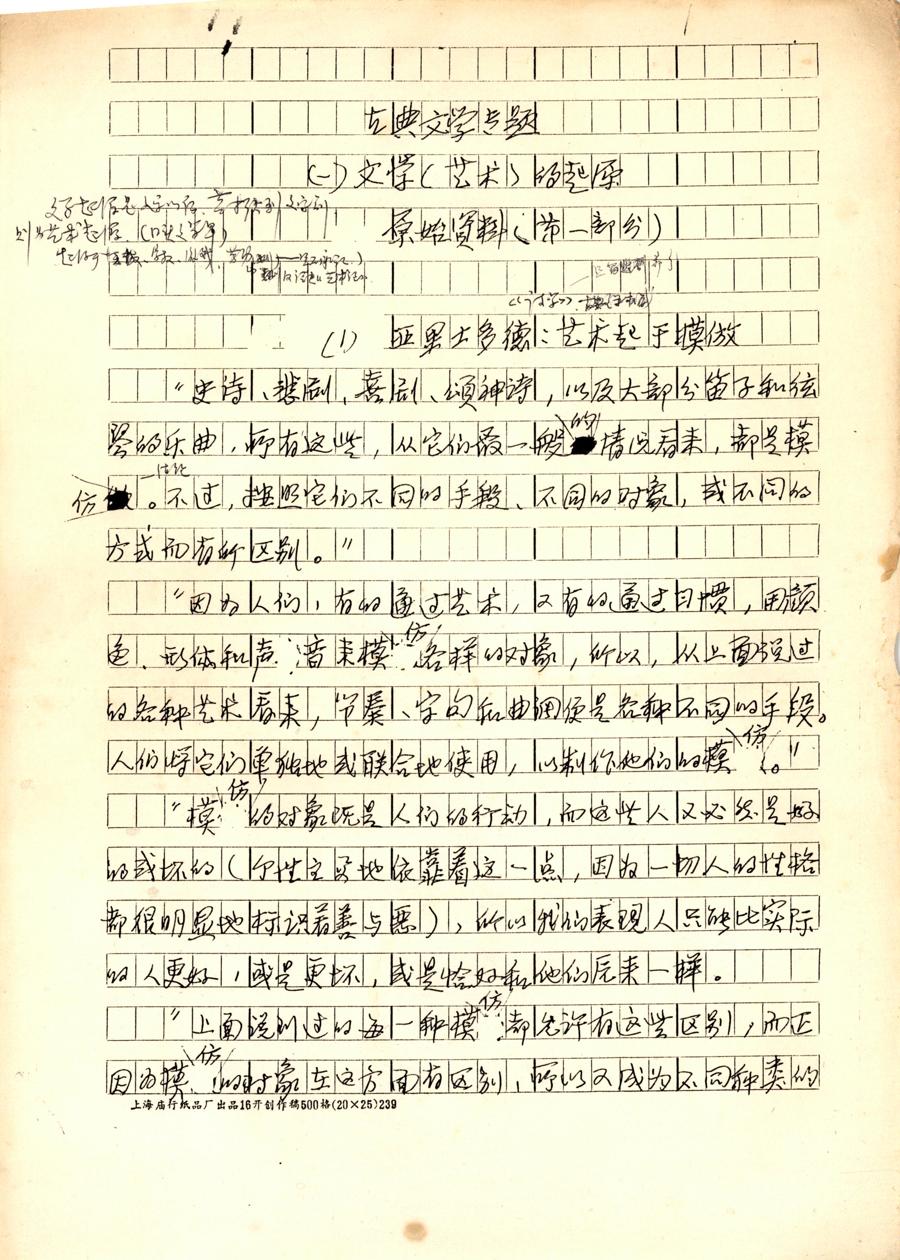 古典文学专题
(一)文学(艺术)的起源
原始资料(第一部分)
(1) 亚里士多德:艺术起于模仿
“史诗、悲剧、喜剧、颂神诗,以及大部分笛子和弦
琴的乐曲,所有这些,从它们最一般的情况看来,都是模
仿。不过,按照它们不同的手段、不同的对象,或不同的
方式而有所区别。”
“因为人们,有的通过艺术,又有的通过习惯,用颜
色、形体和声音来模仿各样的对象,所以,从上面说过
的各种艺术看来,节奏、字句和曲调便是各种不同的手段。
人们将它们单独地或联合地使用,以制作他们的模仿。”
“模仿的对象既是人们的行动,而这些人又必然是好
的或坏的(个性主要地依靠着这一点,因为一切人的性格
都很明显地标识着善与恶),所以我们表现人只能比实际
的人更好,或是更坏,或是恰好和他们原来一样。
“上面说到过的每一种模仿都允许有这些区别,而正
因为模仿的对象在这方面有区别,所以又成为不同种类的
上海庙行纸品厂出品16开创作稿500格(20×25)239